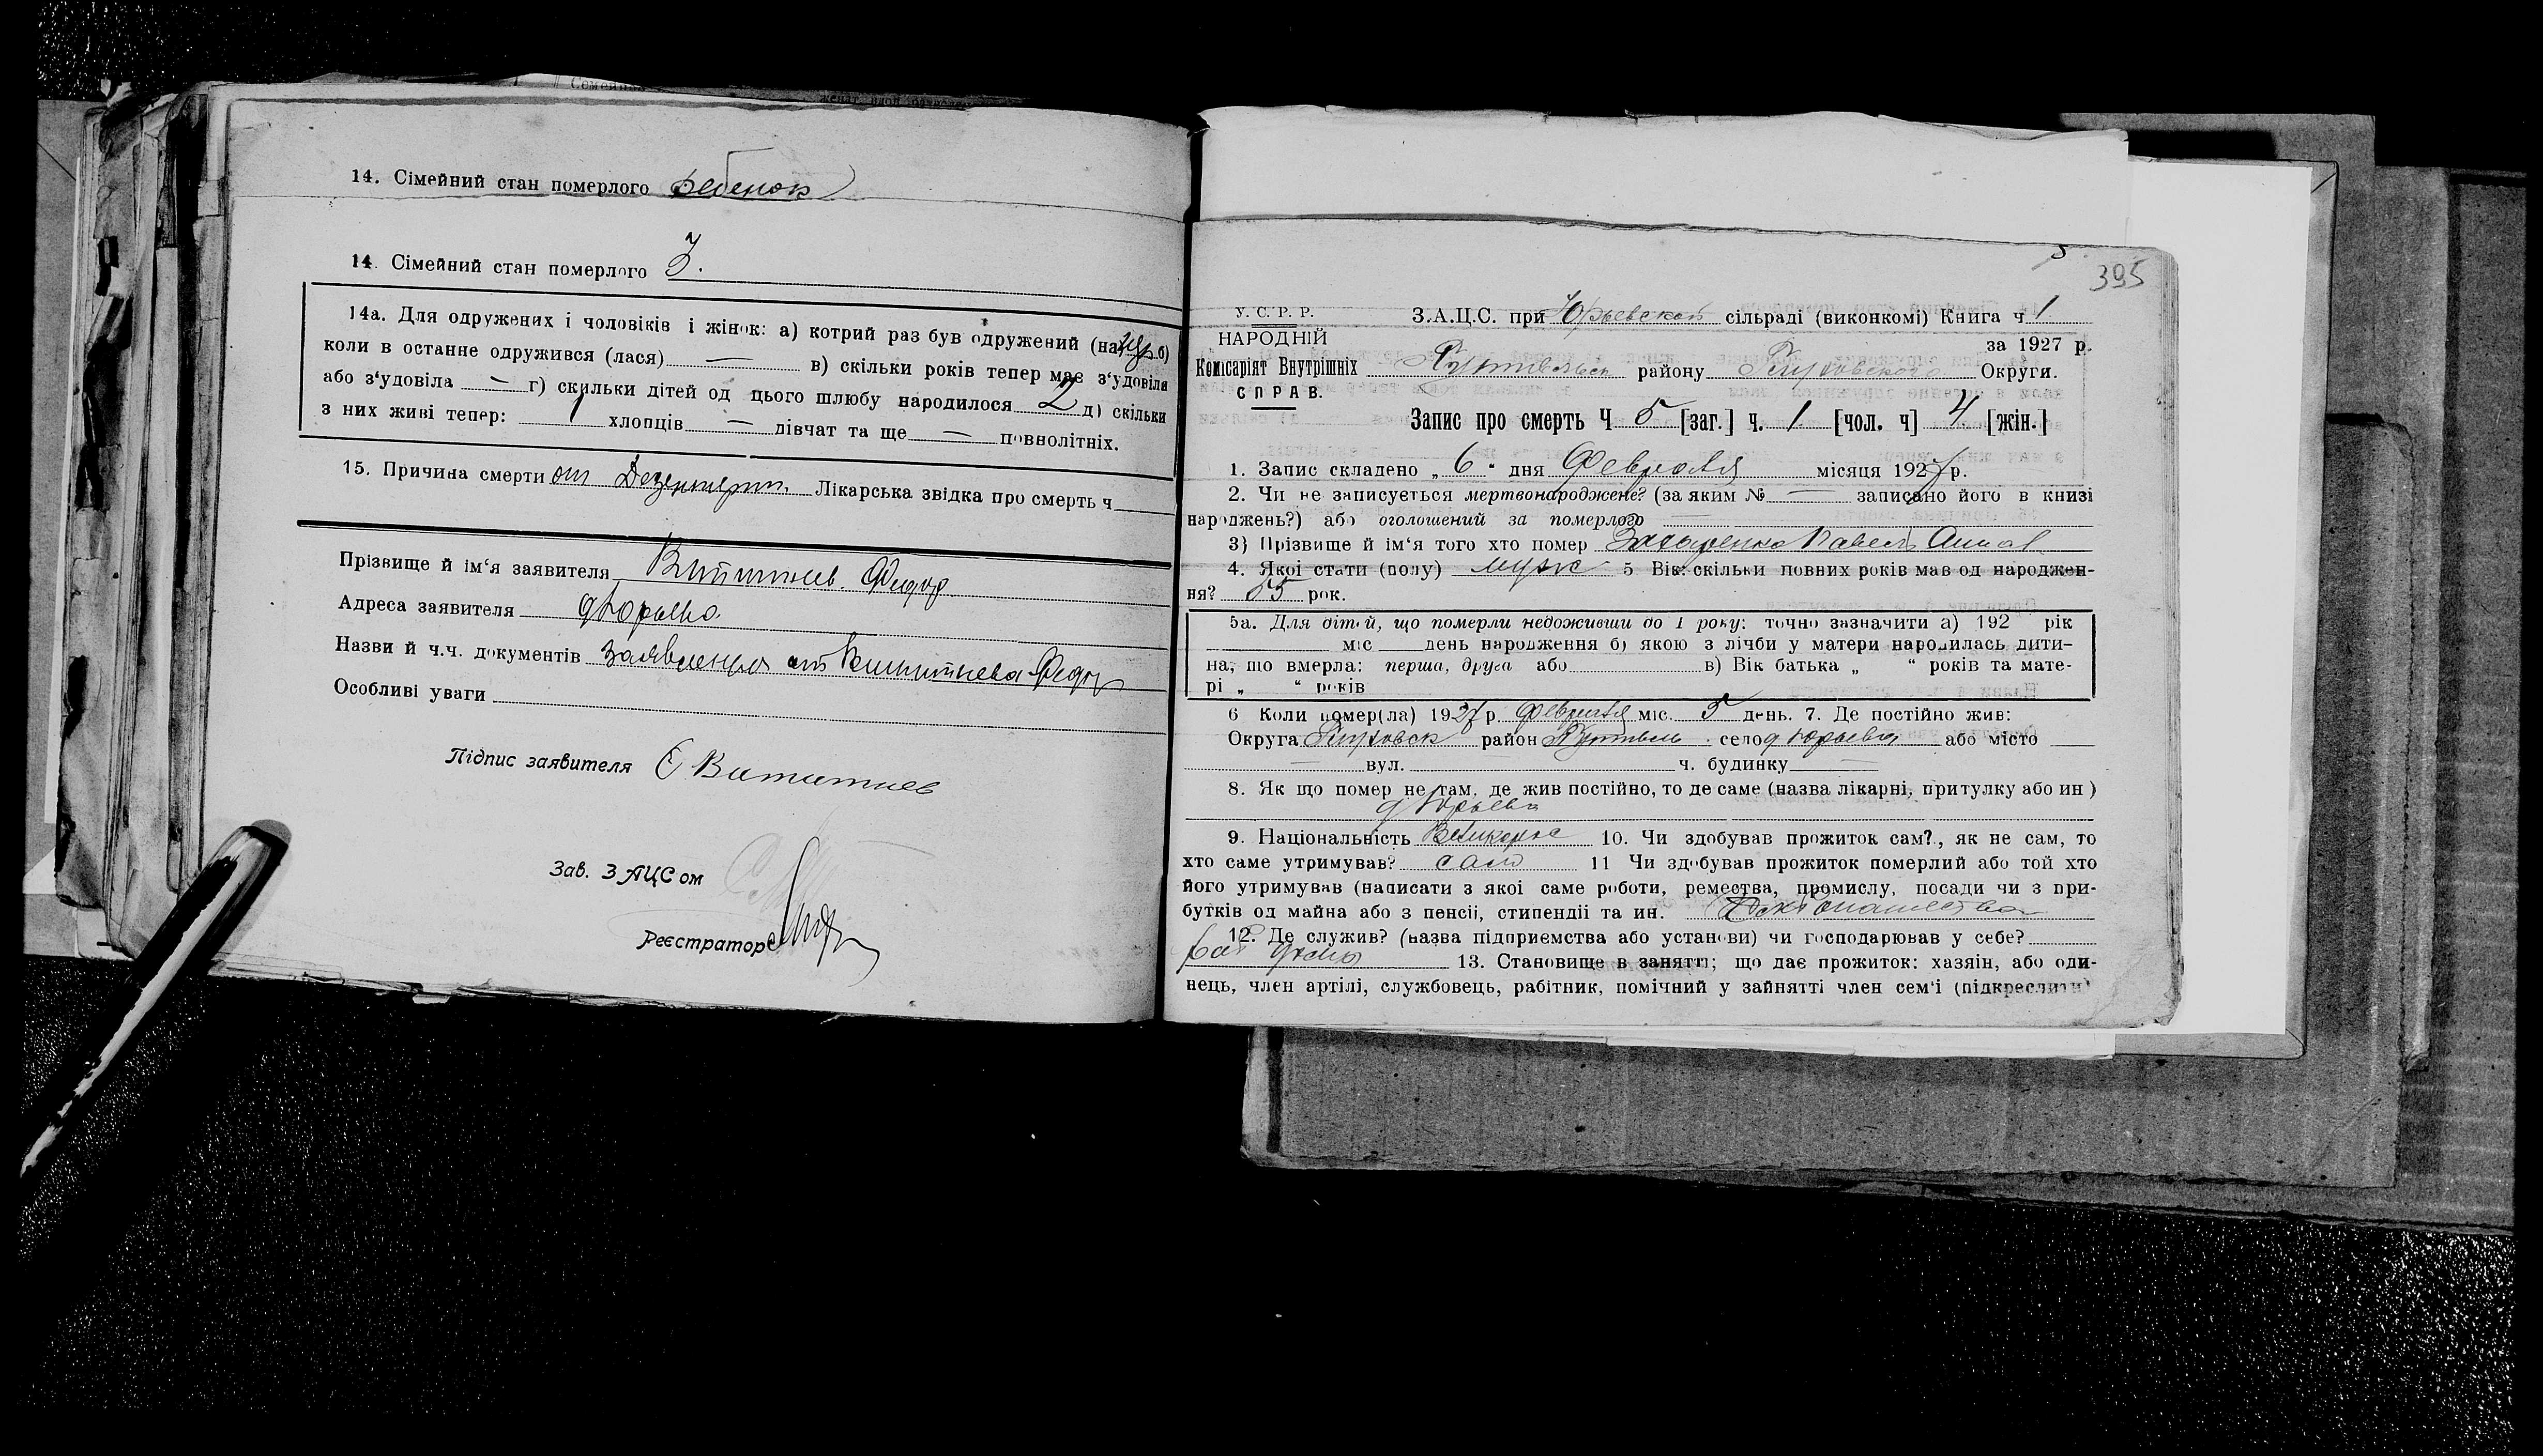 14. Сімейний стан померлого ребенок
14. Сімейний стан померлого 3.
14а. Для одружених і чоловіків і жінок: а) котрий раз був одружений (на) б)
коли в останне одружився (лася) — в) скільки років тепер має з'удовіла
або з'удовіла — г) скильки дітей од цього шлюбу народилося 2 д) скільки
з них живі тепер: 1 хлопців — дівчат та ще — повнолітніх.
15. Причина смерти от Дезентерии Лікарська звідка про смерть ч
Прізвище й ім'я заявителя Федор
Адреса заявителя д Юрьево
Назви й ч.ч. документів Заявление от Федор
Особливі уваги
Підпис заявителя
Зав. ЗАЦСом
Реєстратор
5
395
У. С. Р. Р.
НАРОДНІЙ
Комісаріят Внутрішніх
СПРАВ.
З.А.Ц.С. при Юрьевской сільраді (виконкомі) Книга ч 1
за 1927 р.
Путивльск району Глуховского Округи.
Запис про смерть Ч 5 [заг.] ч. 1 [чол. ч] 4 [жін.]
1. Запис складено „ 6 “ дня Февраля місяця 1927 р.
2. Чи не записуеться мертвонароджене? (за яким № — записано його в книзі
народжень?) або оголошений за померлого —
3) Прізвище й ім'я того хто помер Захаренко Павел
4. Якоі стати (полу) муж 5 Вік: скільки повних років мав од народжен-
ня? 55 рок.
5а. Для дітей, що померли недоживши до 1 року: точно зазначити а) 192 рік
міс день народження б) якою з лічби у матери народилась дити-
на, що вмерла: перша, друга або в) Вік батька „ “ років та мате-
рі „ “ років
6 Коли помер(ла) 1927 р Февраля міс. 5 день. 7. Де постійно жив:
Округа Глуховск район Путивль село д Юрьева або місто
— вул. ч. будинку —
8. Як що помер не там, де жив постійно, то де саме (назва лікарні, притулку або ин)
д Юрьева
9. Національність Великорос 10. Чи здобував прожиток сам?, як не сам, то
хто саме утримував? сам 11 Чи здобував прожиток померлий або той хто
його утримував (написати з якоі саме роботи, ремества, промислу, посади чи з при-
бутків од майна або з пенсіі, стипендіі та ин.
12. Де служив? (назва підприемства або установи) чи господарював у себе?
13. Становище в занятті; що дає прожиток: хазяін, або оди-
нець, член артілі, службовець, рабітник, помічний у зайнятті член сем'і (підкреслити)